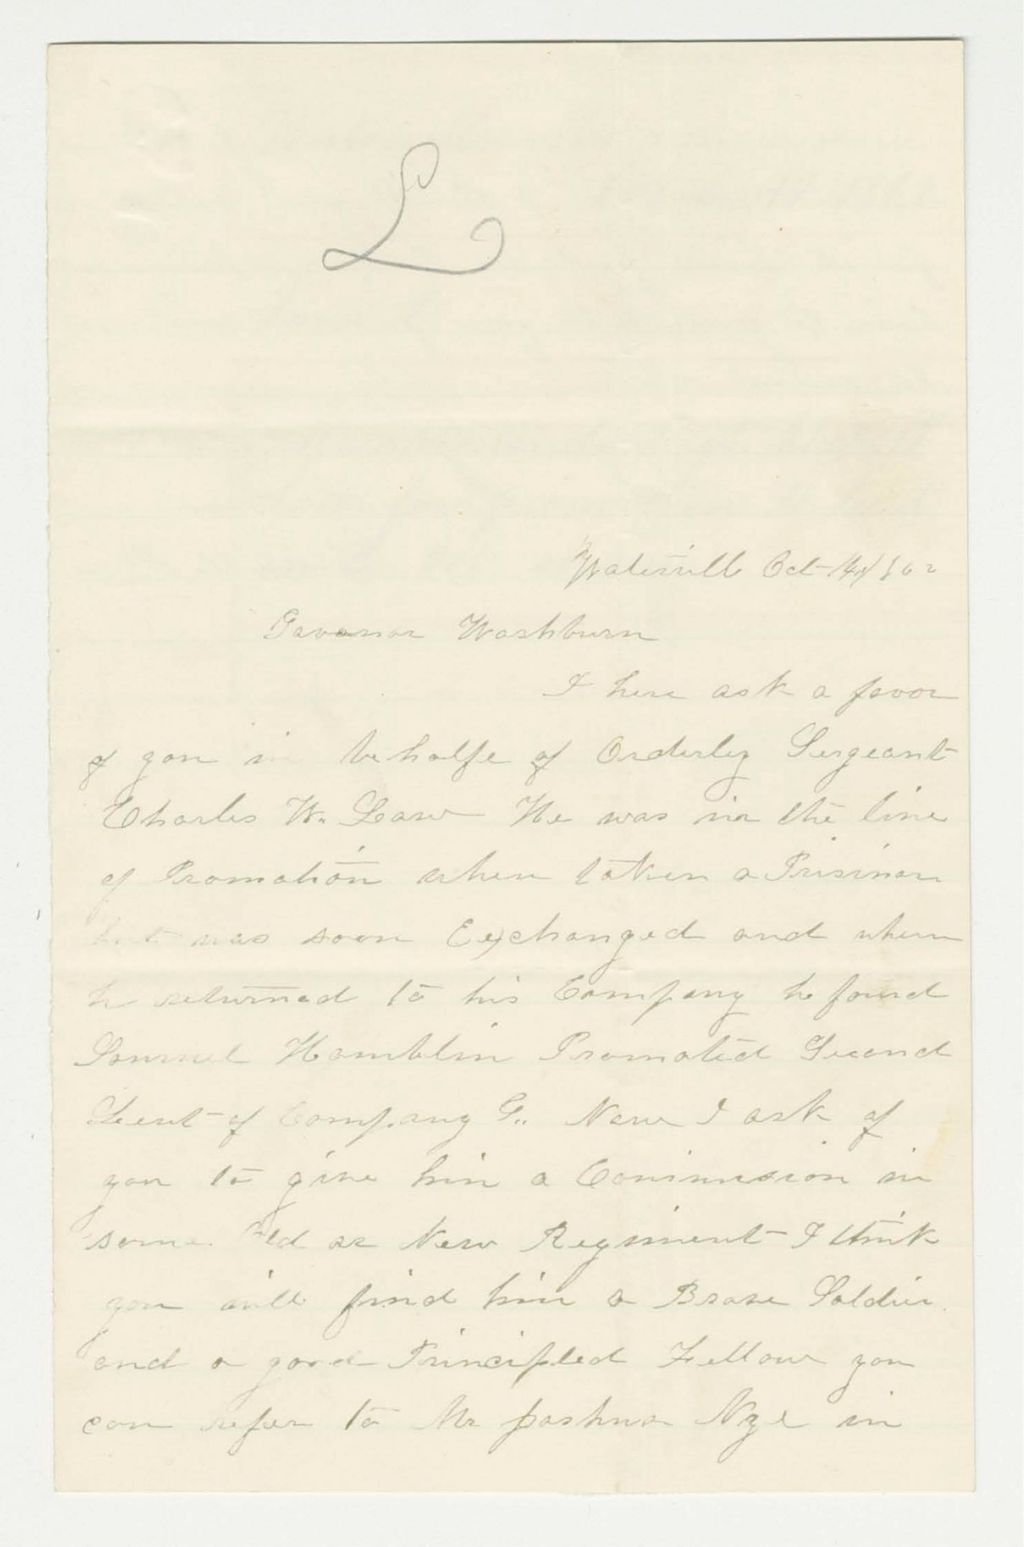 L
Waterville Oct 14th/62
Govenor Washburn
I here ask a favor
of you in behalfe of Orderley Sergeant
Charles W. Low He was in the line
of Promotion when taken a Prisinor
but was soon Exchanged and when
he returned to his Company he found
Samuel Hamblin Promoted Second
Lieut of Company G. Now I ask of
you to give him a Commission in
some Old or New Regiment I think
you will find him a Brave Soldier.
and a good Principled Fellow you
can refer to Mr Joshua Nye in